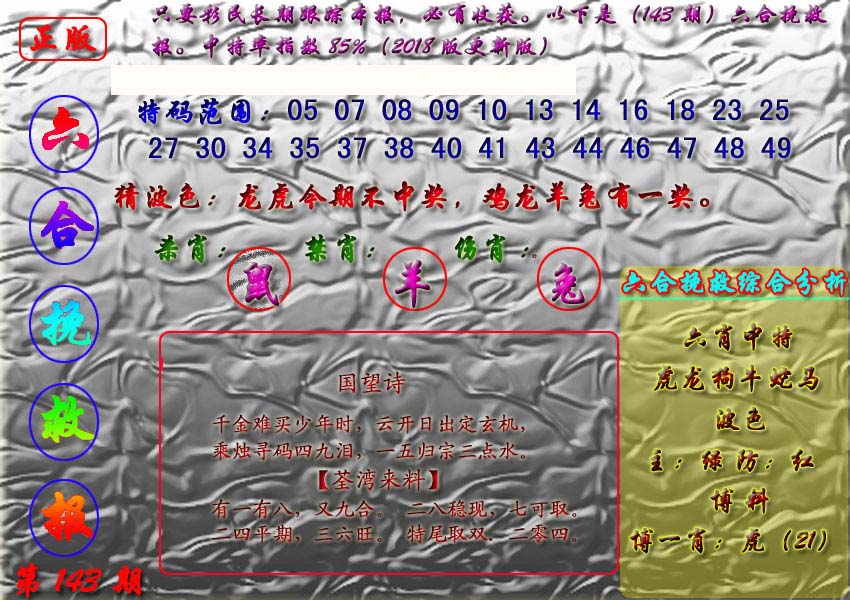 正版
只要彩民长期跟踪本报，必有收获。以下是（143期）六合挽救
报。中特率指数85%（2018版更新版）
六合挽救报
第143期
特码范围：05 07 08 09 10 13 14 16 18 23 25
27 30 34 35 37 38 40 41 43 44 46 47 48 49
猜波色：龙虎今期不中奖，鸡龙羊兔有一奖。
杀肖：鼠 禁肖：羊 伤肖：兔
国望诗
千金难买少年时，云开日出定玄机，
乘烛寻码四九泪，一五归宗三点水。
【荃湾来料】
有一有八，又九合。二八稳现，七可取。
二四平期，三六旺。特尾取双．二零四。
六合挽救综合分析
六肖中特
虎龙狗牛蛇马
波色
主：绿防：红
博料
博一肖：虎（21）